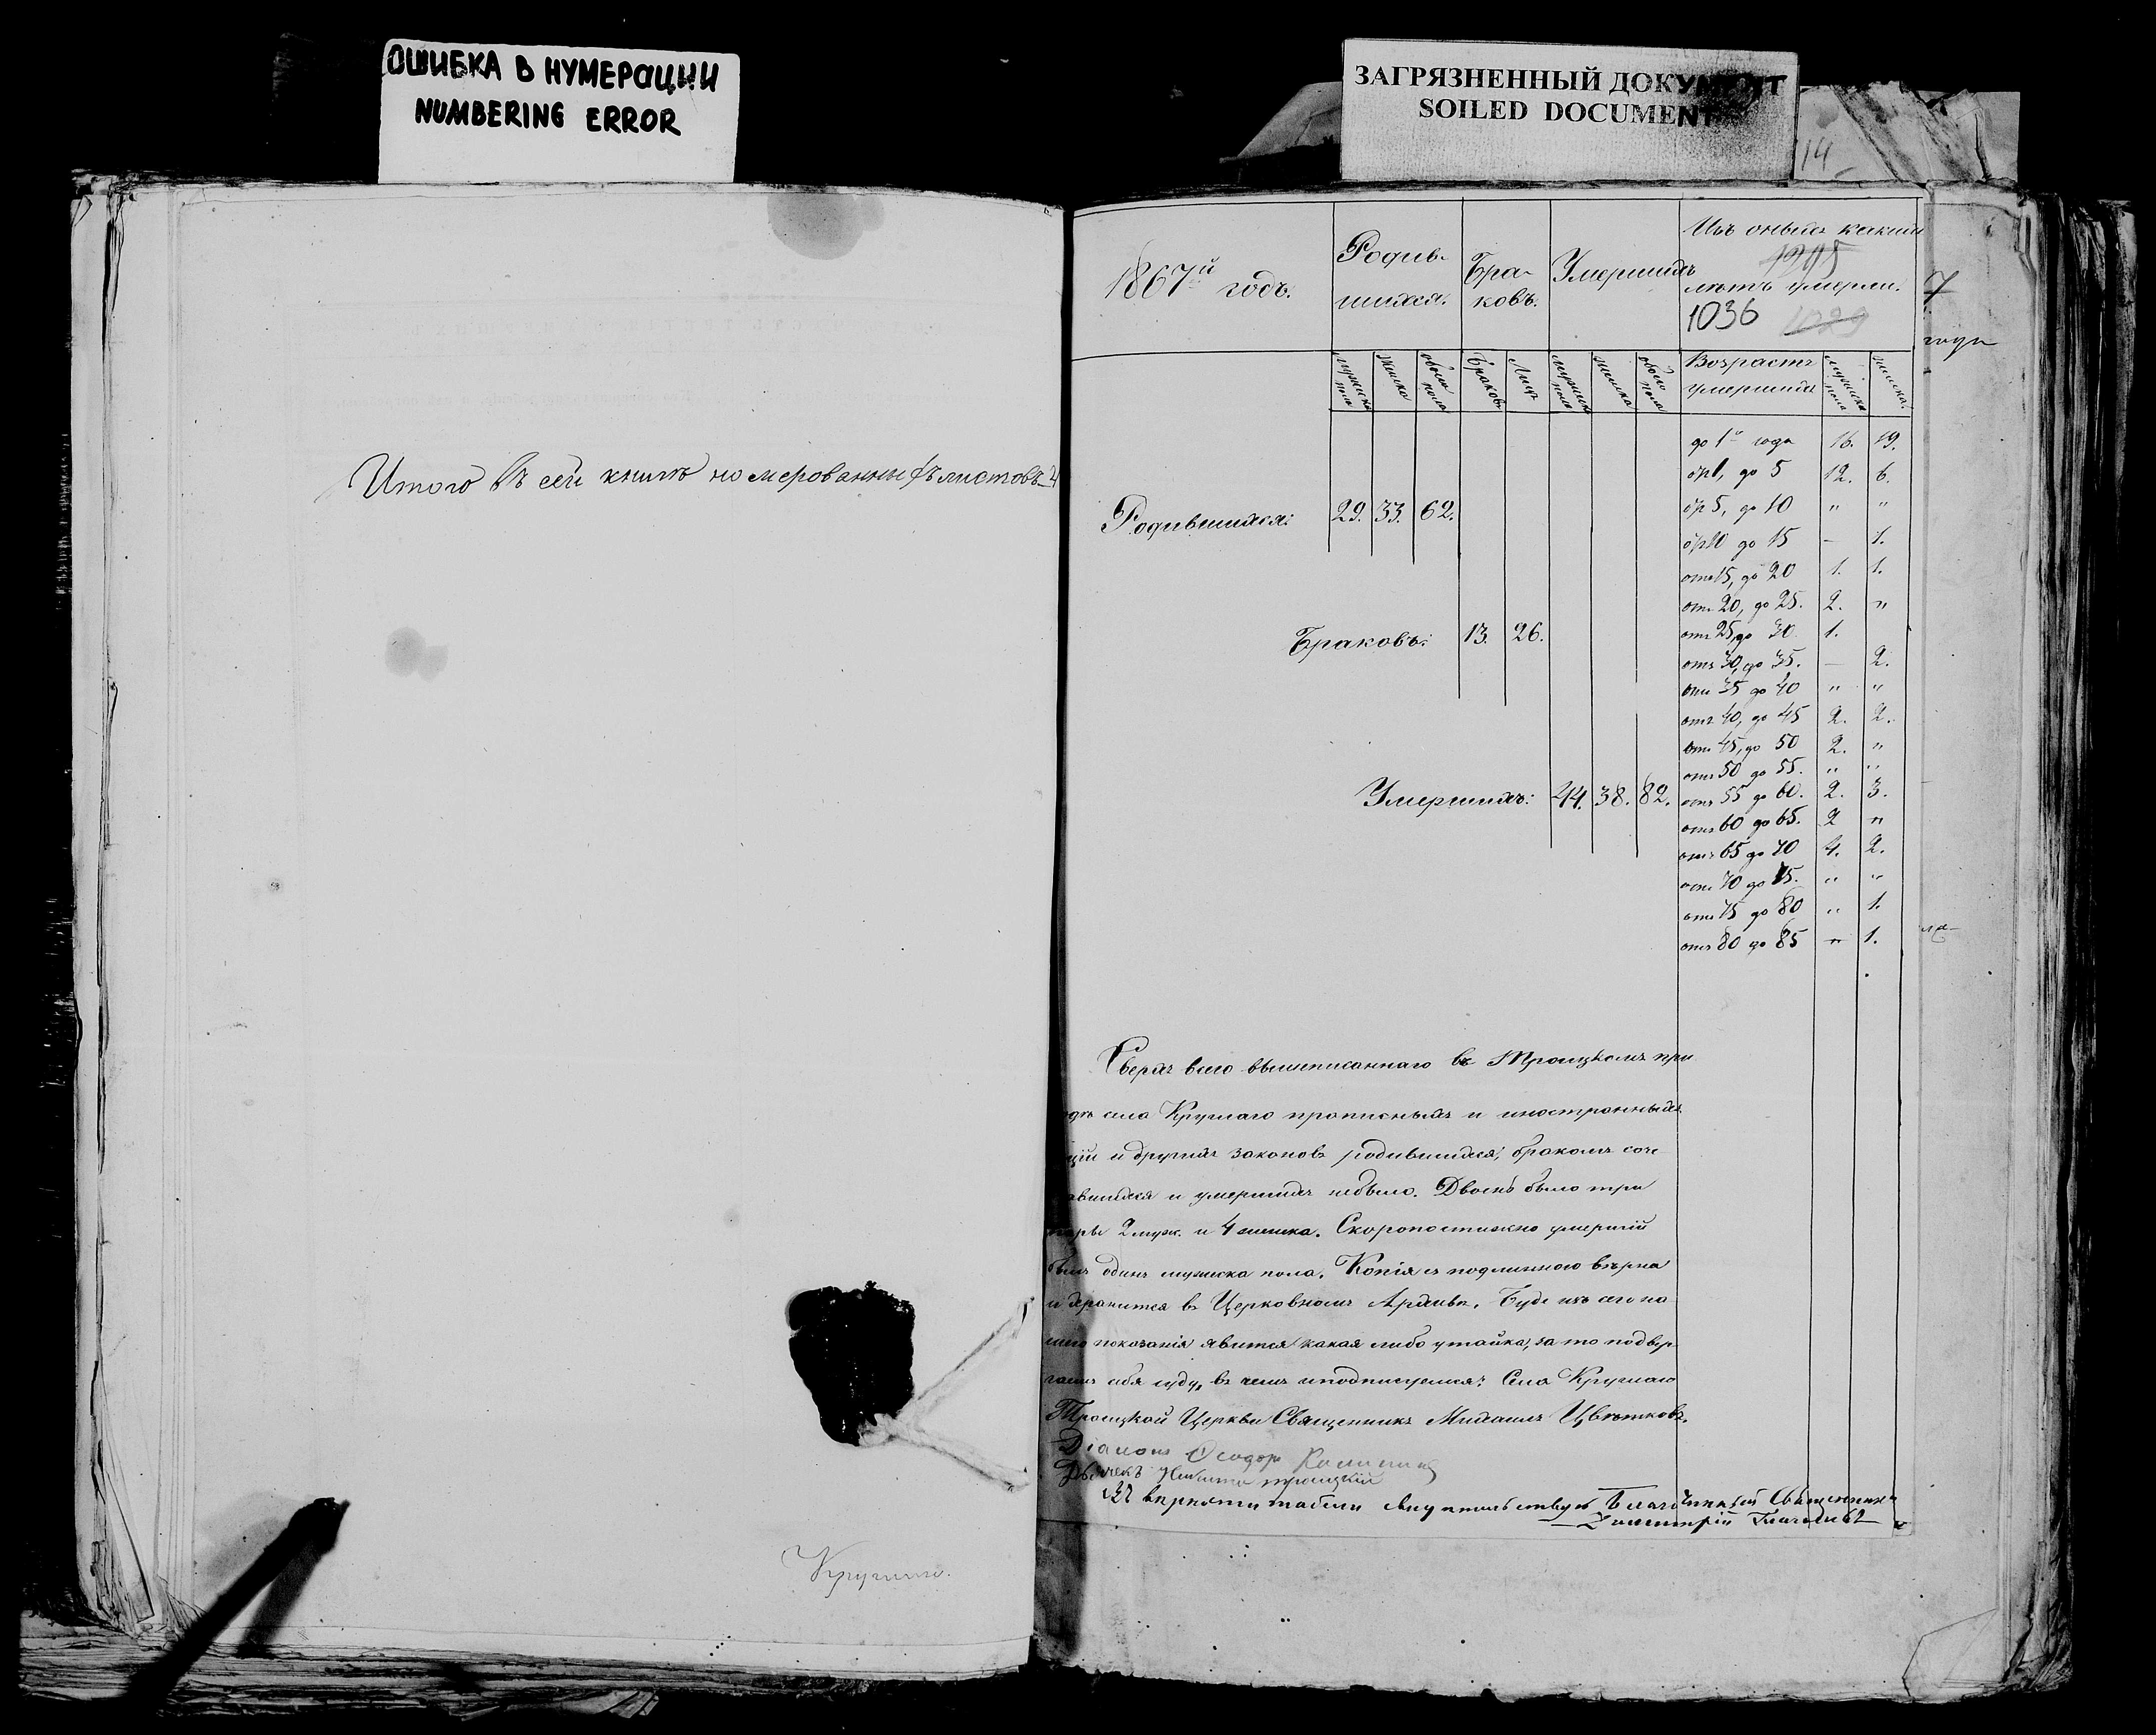 ОШИБКА В НУМЕРАЦИИ
NUMBERING ERROR
ЗАГРЯЗНЕННЫЙ ДОКУМЕНТ
SOILED DOCUMENT
14
Итого въ сей книгѣ номерованныхъ листовъ
Круглаго.
1867й годъ.
Родив-
шихся.
Бра-
ковъ.
Умершихъ
Изъ оныхъ какихъ
1295
лѣтъ умерли.
1036 1029
7
года
мужска пола женска обоего пола Браковъ Лицъ мужска пола женска обоего пола Возрастъ умершихъ мужска пола женска.
до 1го года 16. 19.
от 1, до 5 12. 6.
от 5, до 10 " "
от 10 до 15 — 1.
от 15, до 20 1. 1.
от 20, до 25. 2. "
от 25, до 30 1.
отъ 30, до 35. — 2.
отъ 35 до 40 " "
отъ 40, до 45 2. 2.
отъ 45, до 50 2. "
отъ 50 до 55. " "
отъ 55 до 60. 2. 3.
отъ 60 до 65. 2 "
отъ 65 до 70 4. 2.
отъ 70 до 75. " "
отъ 75 до 80 " 1.
отъ 80 до 85 " 1.
Родившихся: 29. 33. 62.
Браковъ: 13. 26.
Умершихъ: 44. 38. 82.
Сверхъ всего вышеписаннаго въ Троицкомъ при
села Круглаго прописныхъ и иностранныхъ
и другихъ законовъ родившихся, бракомъ соче
авшихся и умершихъ небыло. Двоенъ было три
пары 2 муж. и 4 женска. Скоропостижно умершій
былъ одинъ мужска пола. Копія съ подлинною вѣрна
и хранится въ Церковномъ Архивѣ. Буде изъ сего на
шего показанія явится какая либо утайка, за то подвер
гаемъ себя суду, въ чемъ и подписуемся: Села Круглаго
Троицкой Церкви Священникъ Михаилъ Цвѣтковъ.
Діаконъ Ѳеодоръ
Дьячекъ Никита Троицкій
Въ вѣрности табели свидѣтельствуетъ Благочинный Священникъ
Димитрій